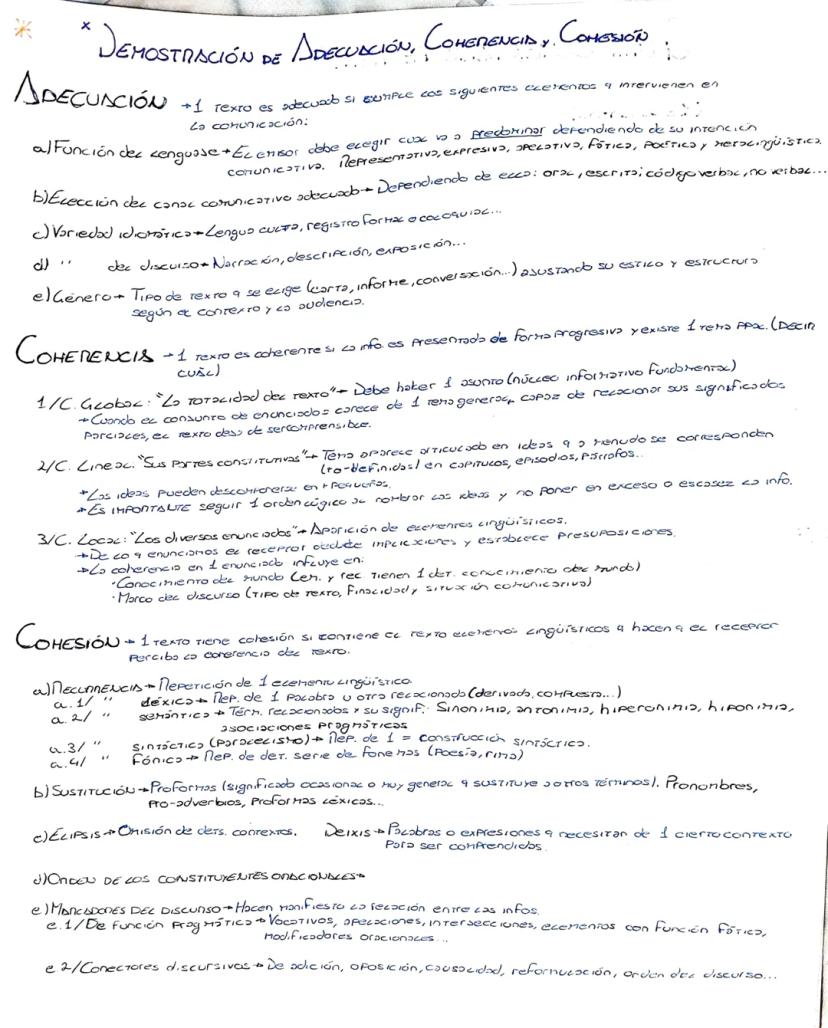 * x DEMOSTRACIÓN DE ADECUACIÓN, COHERENCIA y COHESIÓN.
ADECUACIÓN → 1 texto es adecuado si cumple los siguientes elementos q intervienen en
la comunicación:
a) Función del lenguaje → El emisor debe elegir cual va a predominar dependiendo de su intención
comunicativa. Representativa, expresiva, apelativa, fática, poética y metalingüística.
b) Elección del canal comunicativo adecuado → Dependiendo de ello: oral, escrito; código verbal, no verbal...
c) Variedad idiomática → Lengua culta, registro formal o coloquial...
d) " del discurso → Narración, descripción, exposición...
e) Género → Tipo de texto q se elige (carta, informe, conversación...) ajustando su estilo y estructura
según el contexto y la audiencia.
COHERENCIA → 1 texto es coherente si la info. es presentada de forma progresiva y existe 1 tema ppal. (Decir
cuál)
1/ C. Global: "La totalidad del texto" → Debe haber 1 asunto (núcleo informativo fundamental)
→ Cuando el conjunto de enunciados carece de 1 tema general, capaz de relacionar sus significados
parciales, el texto deja de ser comprensible.
2/ C. Lineal: "Sus partes constitutivas" → Tema aparece articulado en ideas q a menudo se corresponden
en capítulos, episodios, párrafos...
→ Las ideas pueden descomponerse en + pequeñas.
→ Es IMPORTANTE seguir 1 orden lógico al nombrar las ideas y no poner en exceso o escasez la info.
3/ C. Local: "Los diversos enunciados" → Aparición de elementos lingüísticos.
→ De lo q enunciamos el receptor deduce implicaciones y establece presuposiciones.
→ La coherencia en 1 enunciado influye en:
· Conocimiento del mundo (em. y rec. tienen 1 det. conocimiento del mundo)
· Marco del discurso (Tipo de texto, finalidad y situación comunicativa)
COHESIÓN → 1 texto tiene cohesión si contiene el texto elementos lingüísticos q hacen q el receptor
perciba la coherencia del texto.
a) RECURRENCIA → Repetición de 1 elemento lingüístico.
a.1/ " léxica → Rep. de 1 palabra u otra relacionada (derivada, compuesta...)
a.2/ " semántica → Térm. relacionados x su signif. Sinonimia, antonimia, hiperonimia, hiponimia,
asociaciones pragmáticas
a.3/ " sintáctica (paralelismo) → Rep. de 1 = construcción sintáctica.
a.4/ " Fónica → Rep. de det. serie de fonemas (Poesía, rima)
b) SUSTITUCIÓN → Proformas (significado ocasional o muy general q sustituye a otros términos). Pronombres,
pro-adverbios, proformas léxicas...
c) ELIPSIS → Omisión de dets. contextos. Deixis → Palabras o expresiones q necesitan de 1 cierto contexto
para ser comprendidas.
d) ORDEN DE LOS CONSTITUYENTES ORACIONALES →
e) MARCADORES DEL DISCURSO → Hacen manifiesta la relación entre las infos.
e.1/ De función pragmática → Vocativos, apelaciones, intersecciones, elementos con función fática,
modificadores oracionales...
e.2/ Conectores discursivos → De adición, oposición, causalidad, reformulación, orden del discurso...